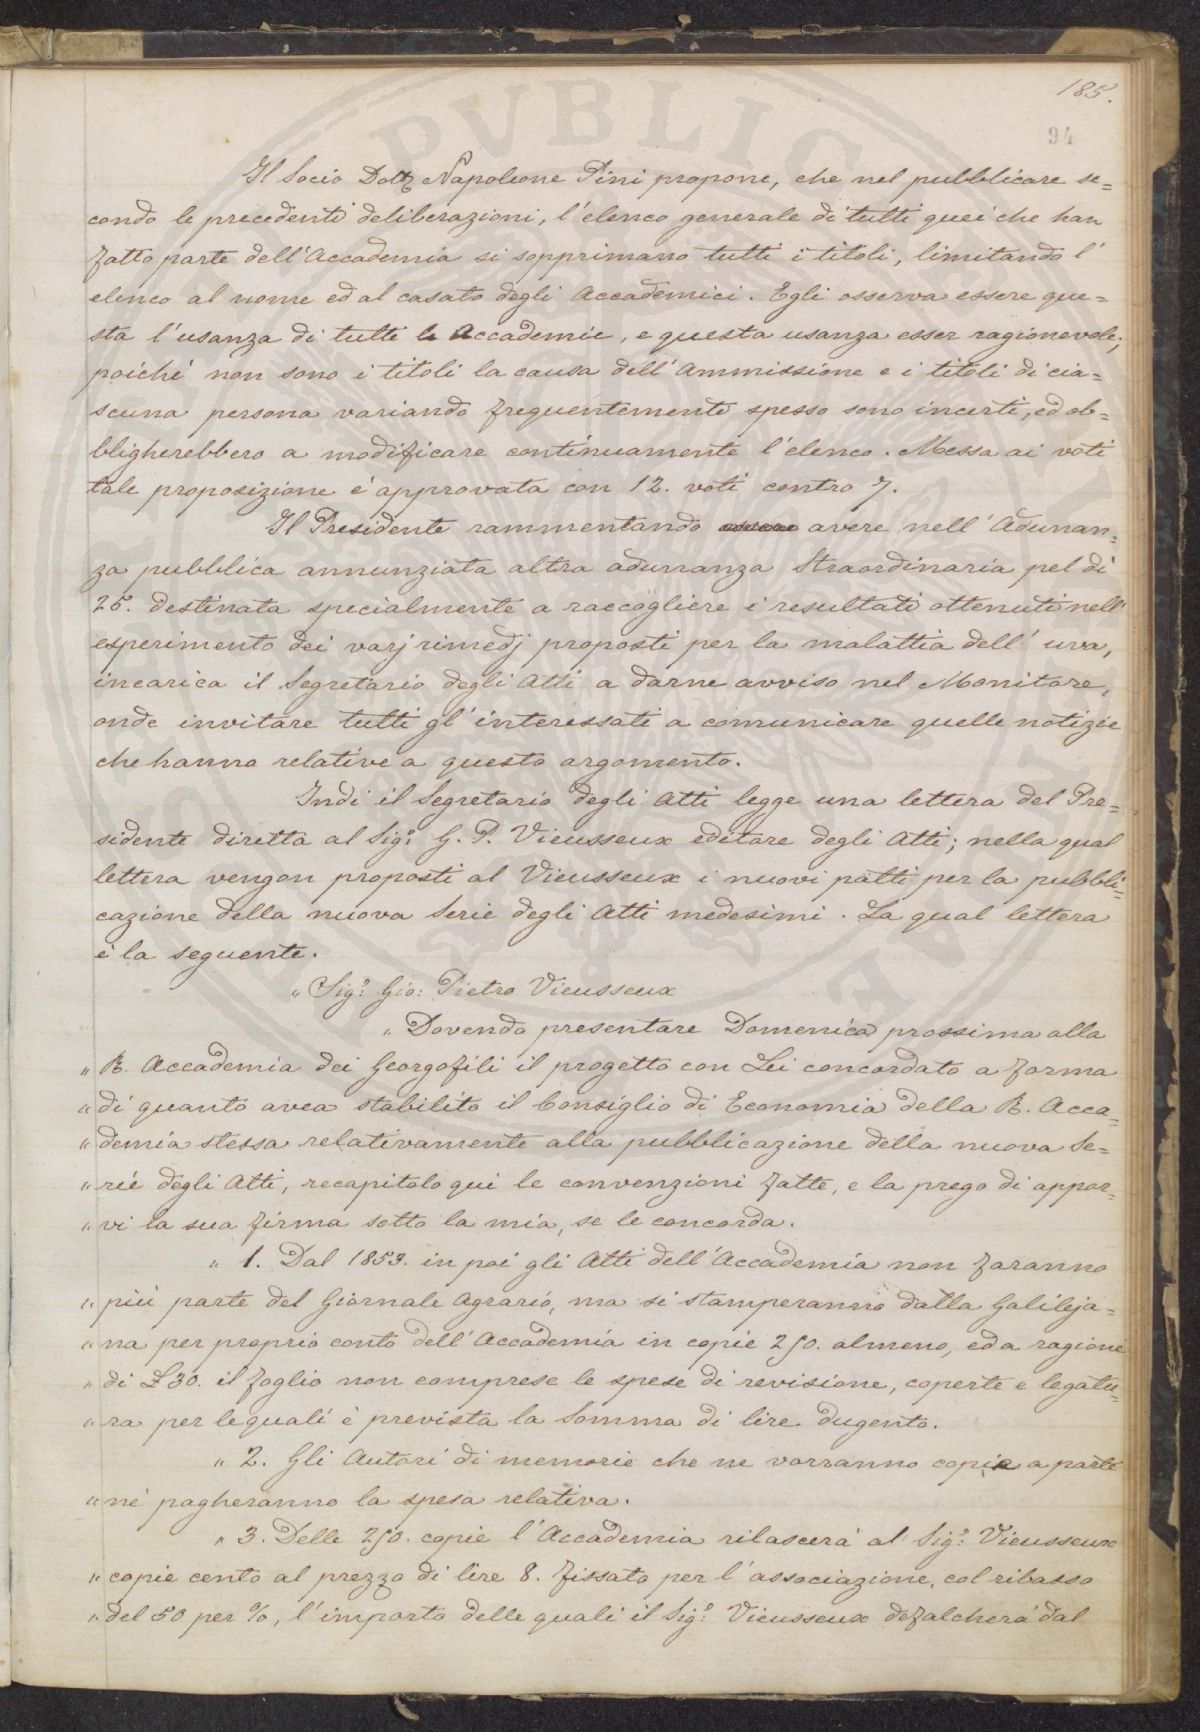 185.
94
Il Socio Dott. Napoleone Pini propone, che nel pubblicare se=
condo le precedenti deliberazioni, l'elenco generale di tutti quei che han
fatto parte dell'Accademia si sopprimano tutti i titoli, limitando l'
elenco al nome ed al casato degli Accademici. Egli osserva essere que=
sta l'usanza di tutte le Accademie, e questa usanza esser ragionevole;
poiché non sono i titoli la causa dell'Ammissione e i titoli di cia=
scuna persona variando frequentemente spesso sono incerti, ed ob=
bligherebbero a modificare continuamente l'elenco. Messa ai voti
tale proposizione é approvata con 12. voti contro 7.
Il Presidente rammentando avere nell'Adunan=
za pubblica annunziata altra adunanza Straordinaria pel dì
25. destinata specialmente a raccogliere i resultati ottenuti nell'
esperimento dei varj rimedj proposti per la malattia dell'uva,
incarica il Segretario degli Atti a darne avviso nel Monitore,
onde invitare tutti gl'interessati a comunicare quelle notizie
che hanno relative a questo argomento.
Indi il Segretario degli Atti legge una lettera del Pre=
sidente diretta al Sig.r G. P. Vieusseux editore degli Atti; nella qual
lettera vengon proposti al Vieusseux i nuovi patti per la pubbli=
cazione della nuova Serie degli Atti medesimi. La qual lettera
è la seguente.
„ Sig.r Gio: Pietro Vieusseux
„ Dovendo presentare Domenica prossima alla
„ R. Accademia dei Georgofili il progetto con Lei concordato a forma
„ di quanto avea stabilito il Consiglio di Economia della R. Acca=
„ demia stessa relativamente alla pubblicazione della nuova Se=
„ rie degli Atti, recapitolo qui le convenzioni fatte, e la prego di appor=
„ vi la sua firma sotto la mia, se le concorda.
„ 1. Dal 1853. in poi gli Atti dell'Accademia non faranno
„ più parte del Giornale Agrario, ma si stamperanno dalla Galileja=
„ na per proprio conto dell'Accademia in copie 250. almeno, ed a ragione
„ di £ 30. il foglio non comprese le spese di revisione, coperte e legatu=
„ ra per le quali è prevista la Somma di lire dugento.
„ 2. Gli Autori di memorie che ne vorranno copie a parte
„ ne pagheranno la spesa relativa.
„ 3. Delle 250. copie l'Accademia rilascerà al Sig.r Vieusseux
„ copie cento al prezzo di lire 8. fissato per l'associazione, col ribasso
„ del 50 per %, l'importo delle quali il Sig.r Vieusseux defalcherà dal